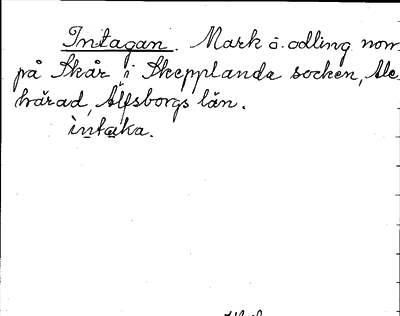 Intagan. Mark o. odling nom
på Skår i Skepplanda socken, Ale
härad, Älfsborgs län.
intaka.